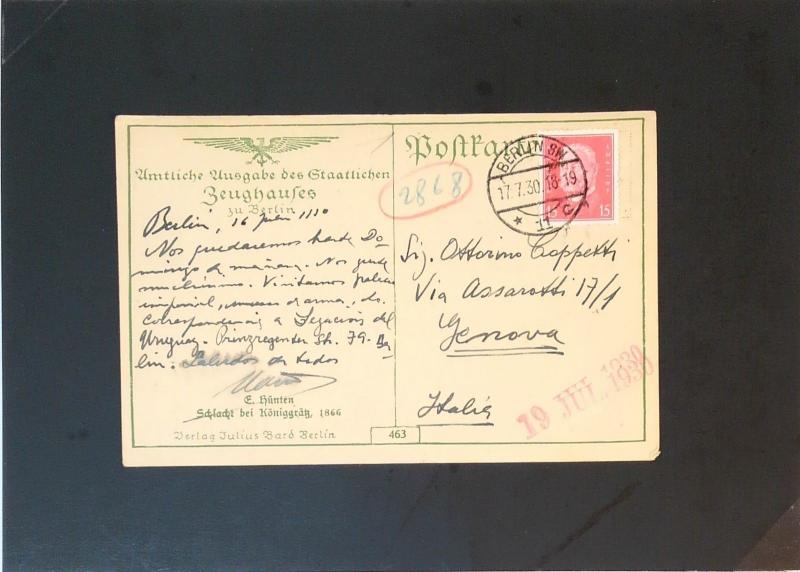 Amtliche Ausgabe des Staatlichen
Zeughauses
zu Berlin
Berlin, 16 julio 1930
Nos quedaremos hasta Do-
mingo de mañana. Nos gusta
muchísimo. Visitamos palacio
imperial, museo de armas, la
correspondencia a Legación del
Uruguay. Prinzregenten Str. 79. Ber-
lin. Saludos de todos
E. Hünten
Schlacht bei Königgrätz, 1866
Verlag Julius Bard Berlin
463
Postkarte
2868
BERLIN SW
17.7.30.18-19
* 11 c
15
Sig. Ottorino Coppetti
Via Assarotti 17/1
Genova
Italia
19 JUL. 1930